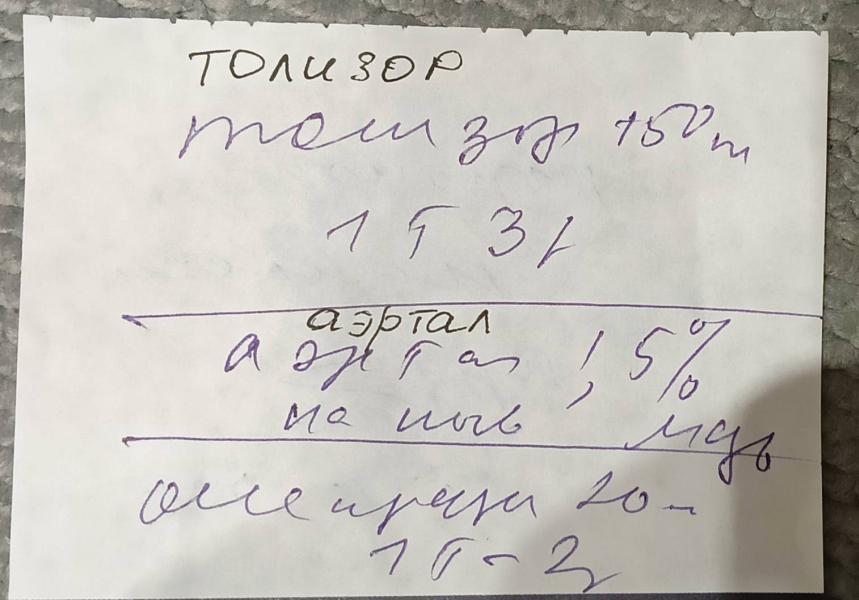 ТОЛИЗОР
толизор 150 m
1 T 3 р
аэртал
аэртал 1,5%
мазь
омепразол 20 -
1 T - 2 р